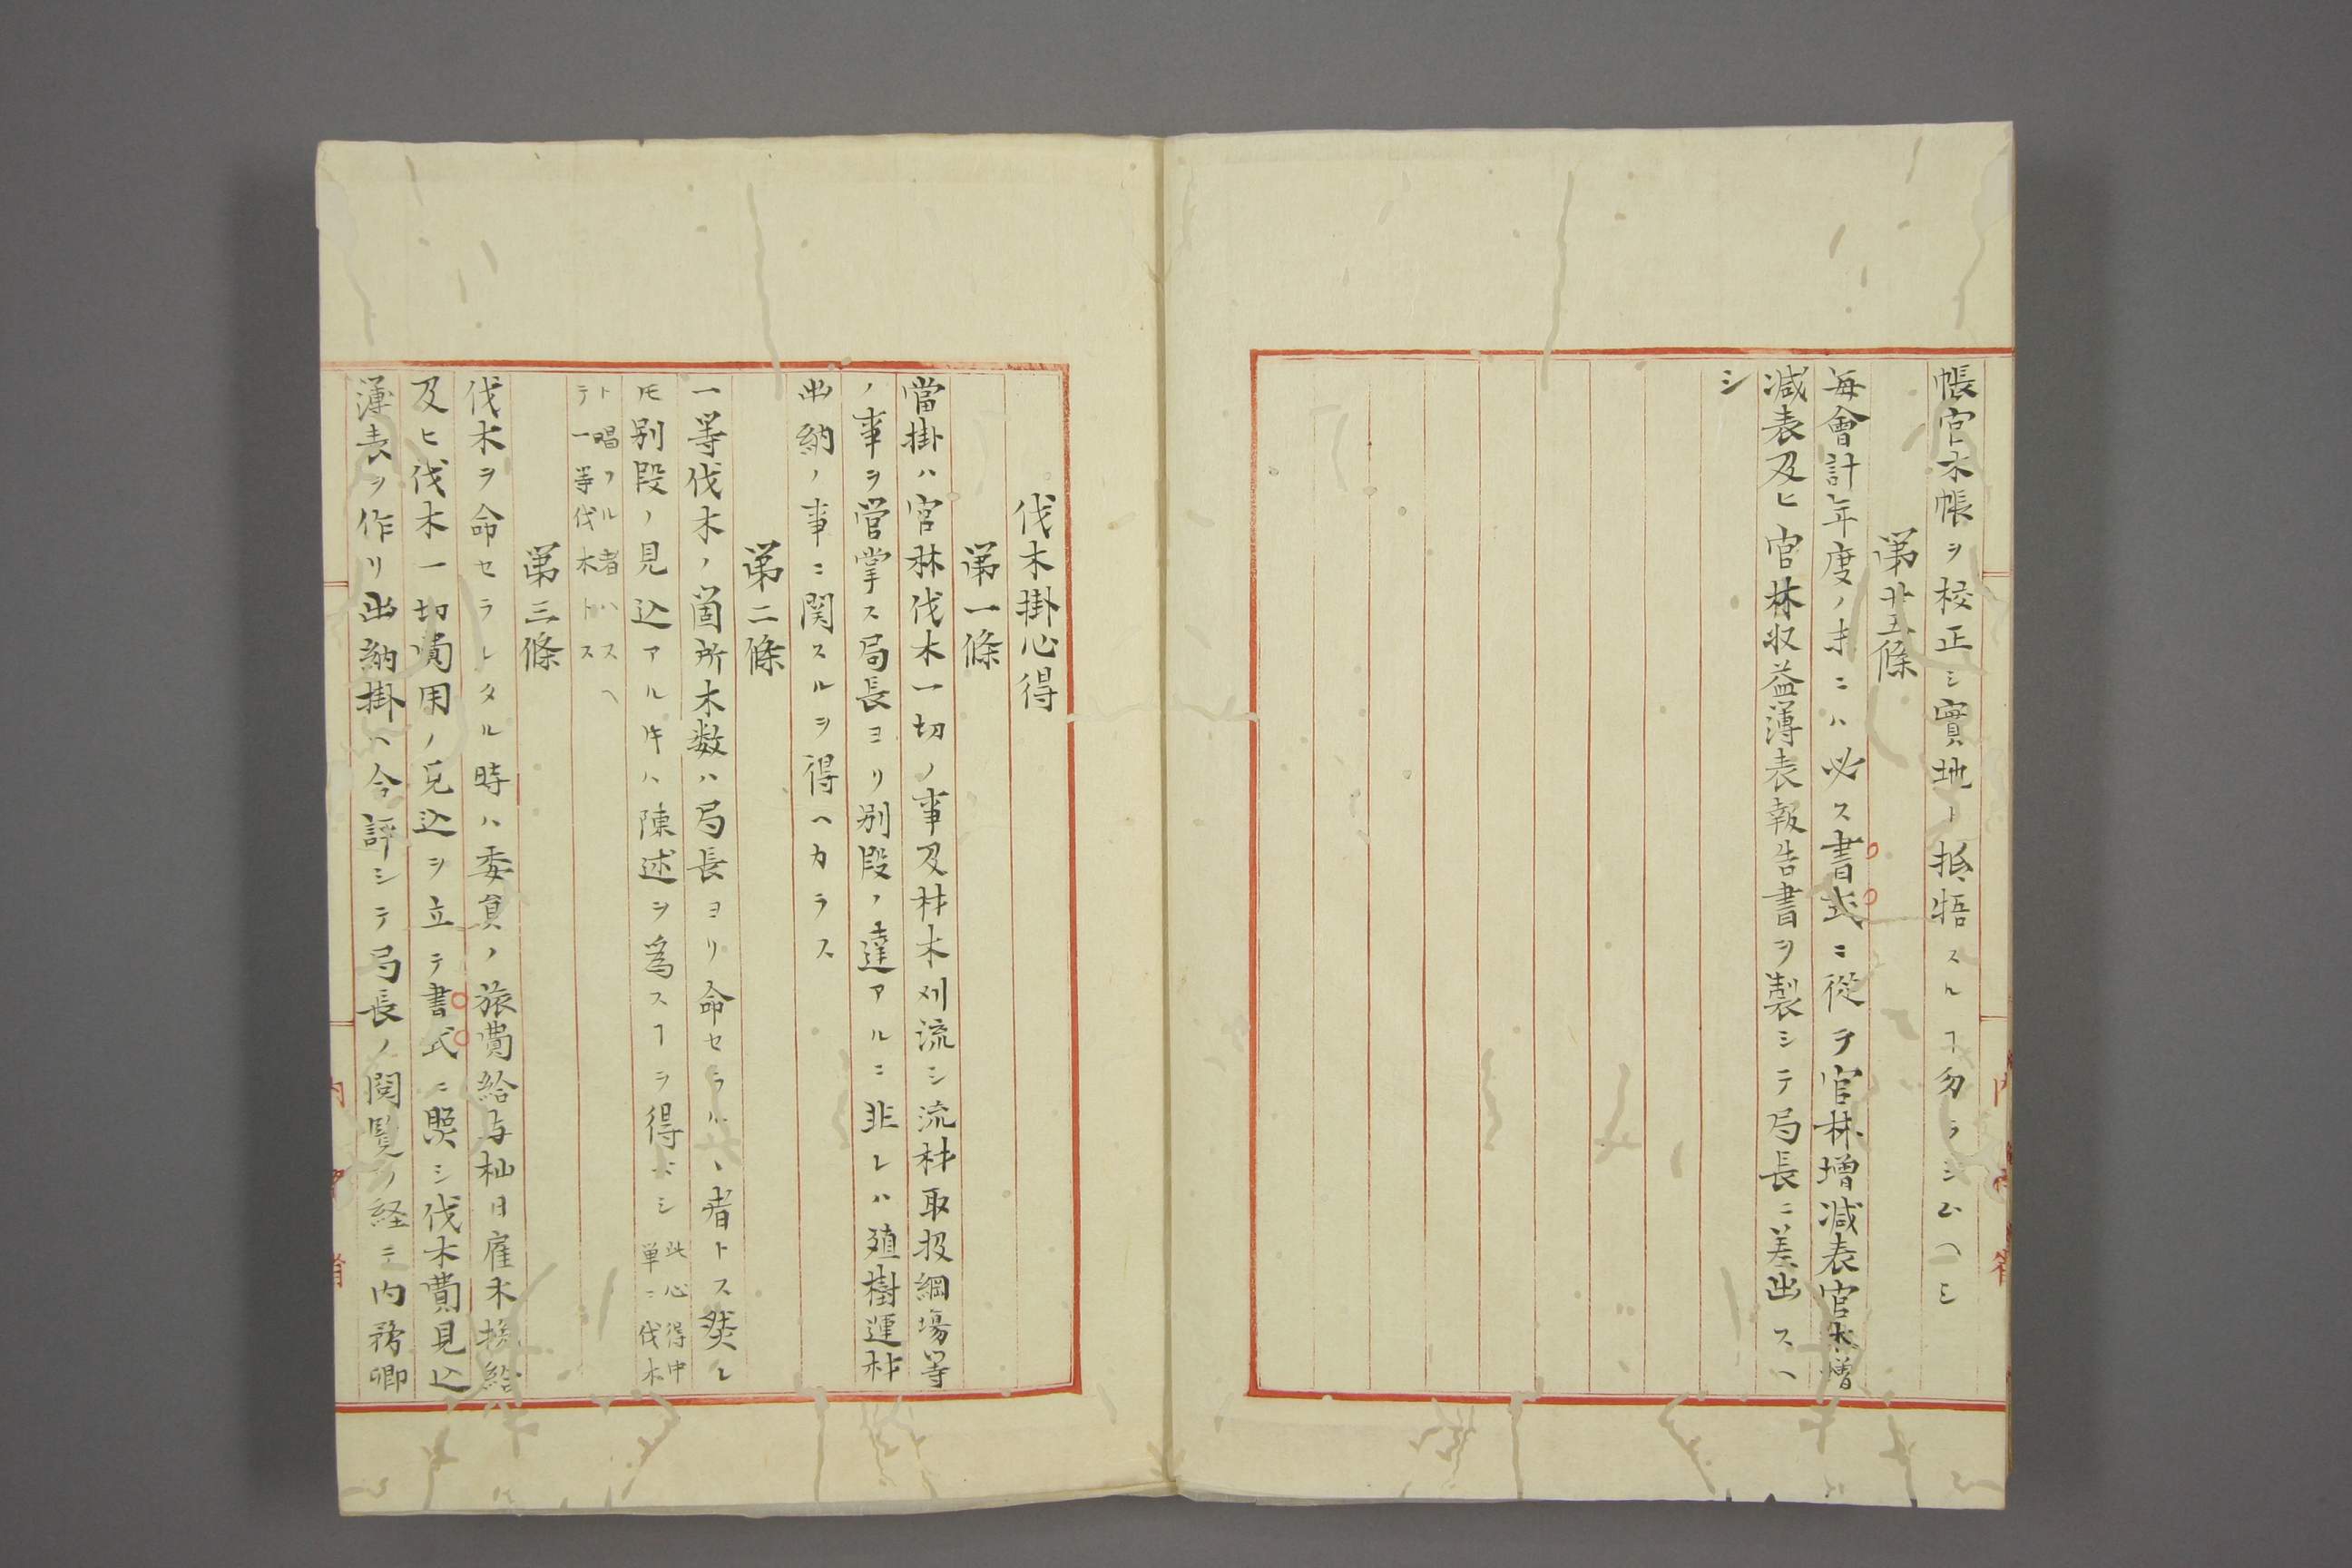 帳官木帳ヲ校正シ實地ト抵牾スルヿ勿ラシムヘシ
第廿五條
毎會計年度ノ末ニハ必ス書式ニ從ヲ官林増減表官木増
減表及ヒ官林収益薄表報告書ヲ製シテ局長ニ差出スヘ
シ
伐木掛心得
第一條
當掛ハ官林伐木一切ノ事及材木刈流シ流材取扱綱場等
ノ事ヲ営掌ス局長ヨリ別段ノ達アルニ非レハ殖樹運材
出納ノ事ニ関スルヲ得ヘカラス
第二條
一等伐木ノ箇所木数ハ局長ヨリ命セラルヽ者トス然レ
𪜈別段ノ見込アル片ハ陳述ヲ爲スヿヲ得ヘシ
此心得中
単ニ伐木
ト唱フル者ハスヘ
テ一等伐木トス
第三條
伐木ヲ命セラレタル時ハ委員ノ旅費給与杣日雇木挽給
及ヒ伐木一切費用ノ見込ヲ立テ書式ニ照シ伐木費見込
薄表ヲ作リ出納掛ヘ合評シテ局長ノ閲覧ヲ経テ内務卿
内務省